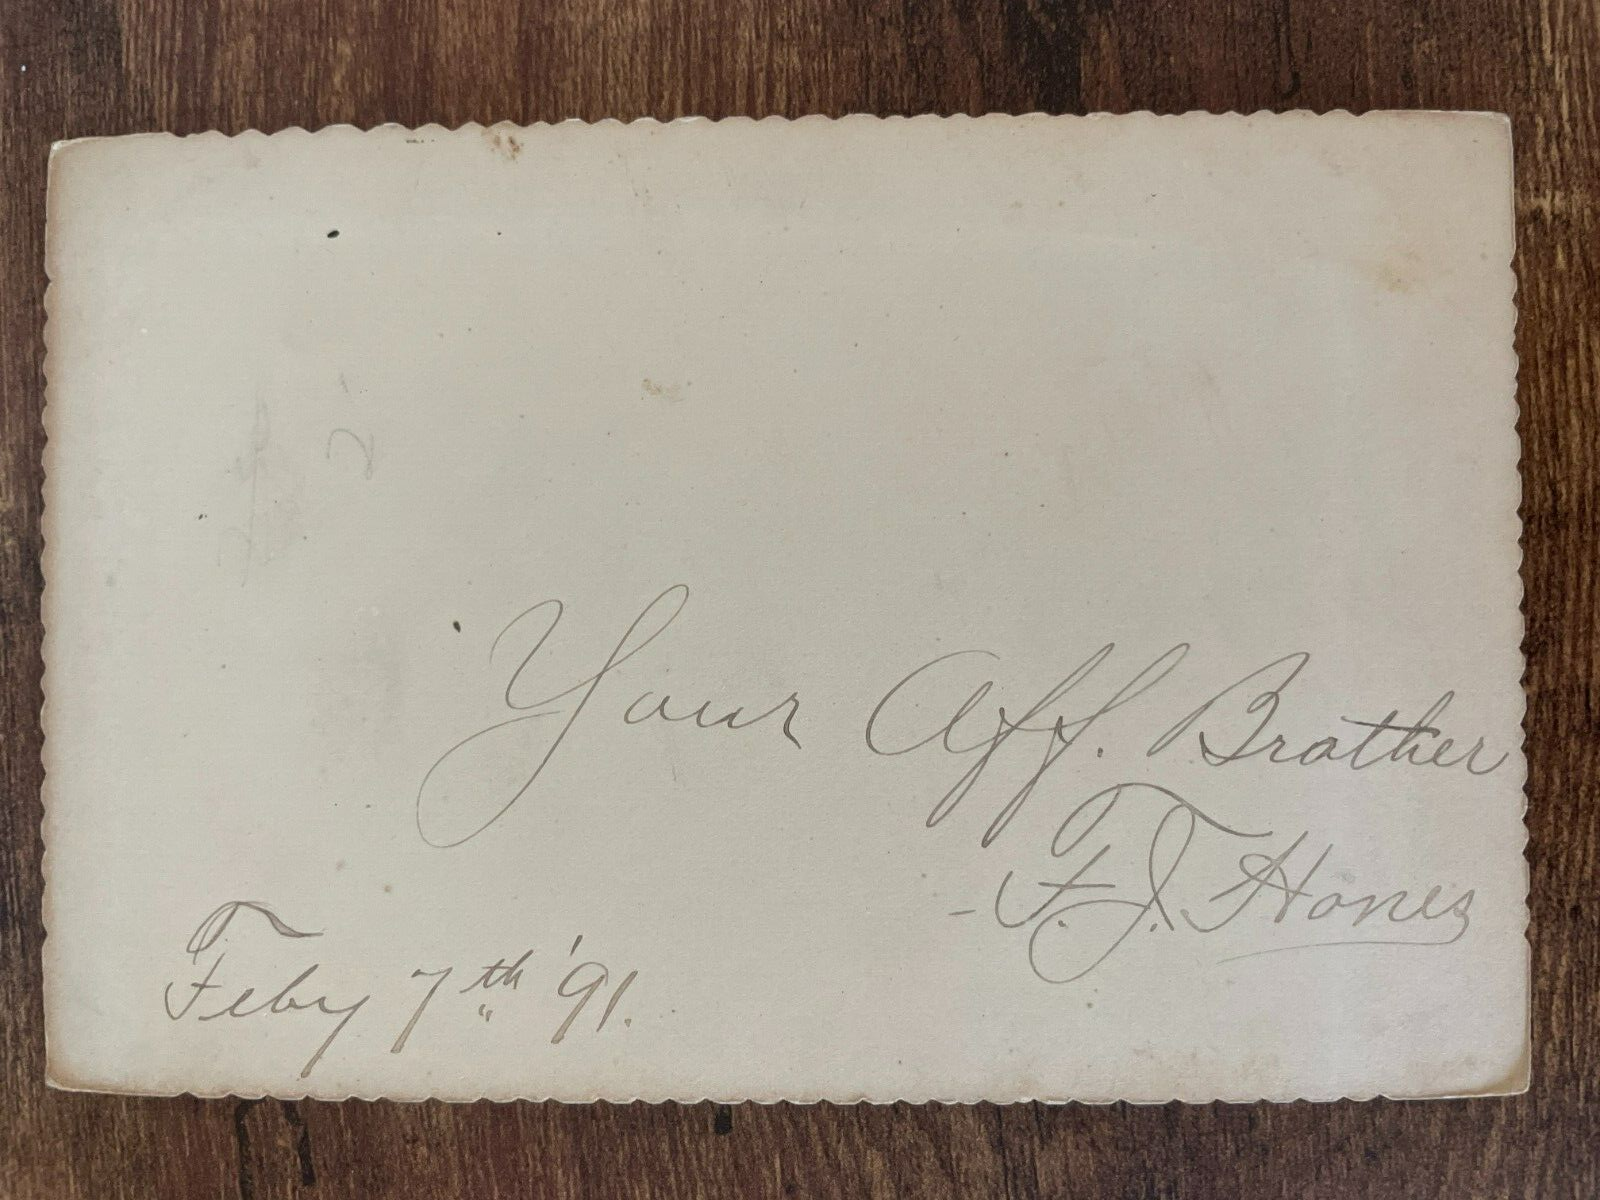 Your Aff. Brother
- F. J. Hones
Feby 7th '91.